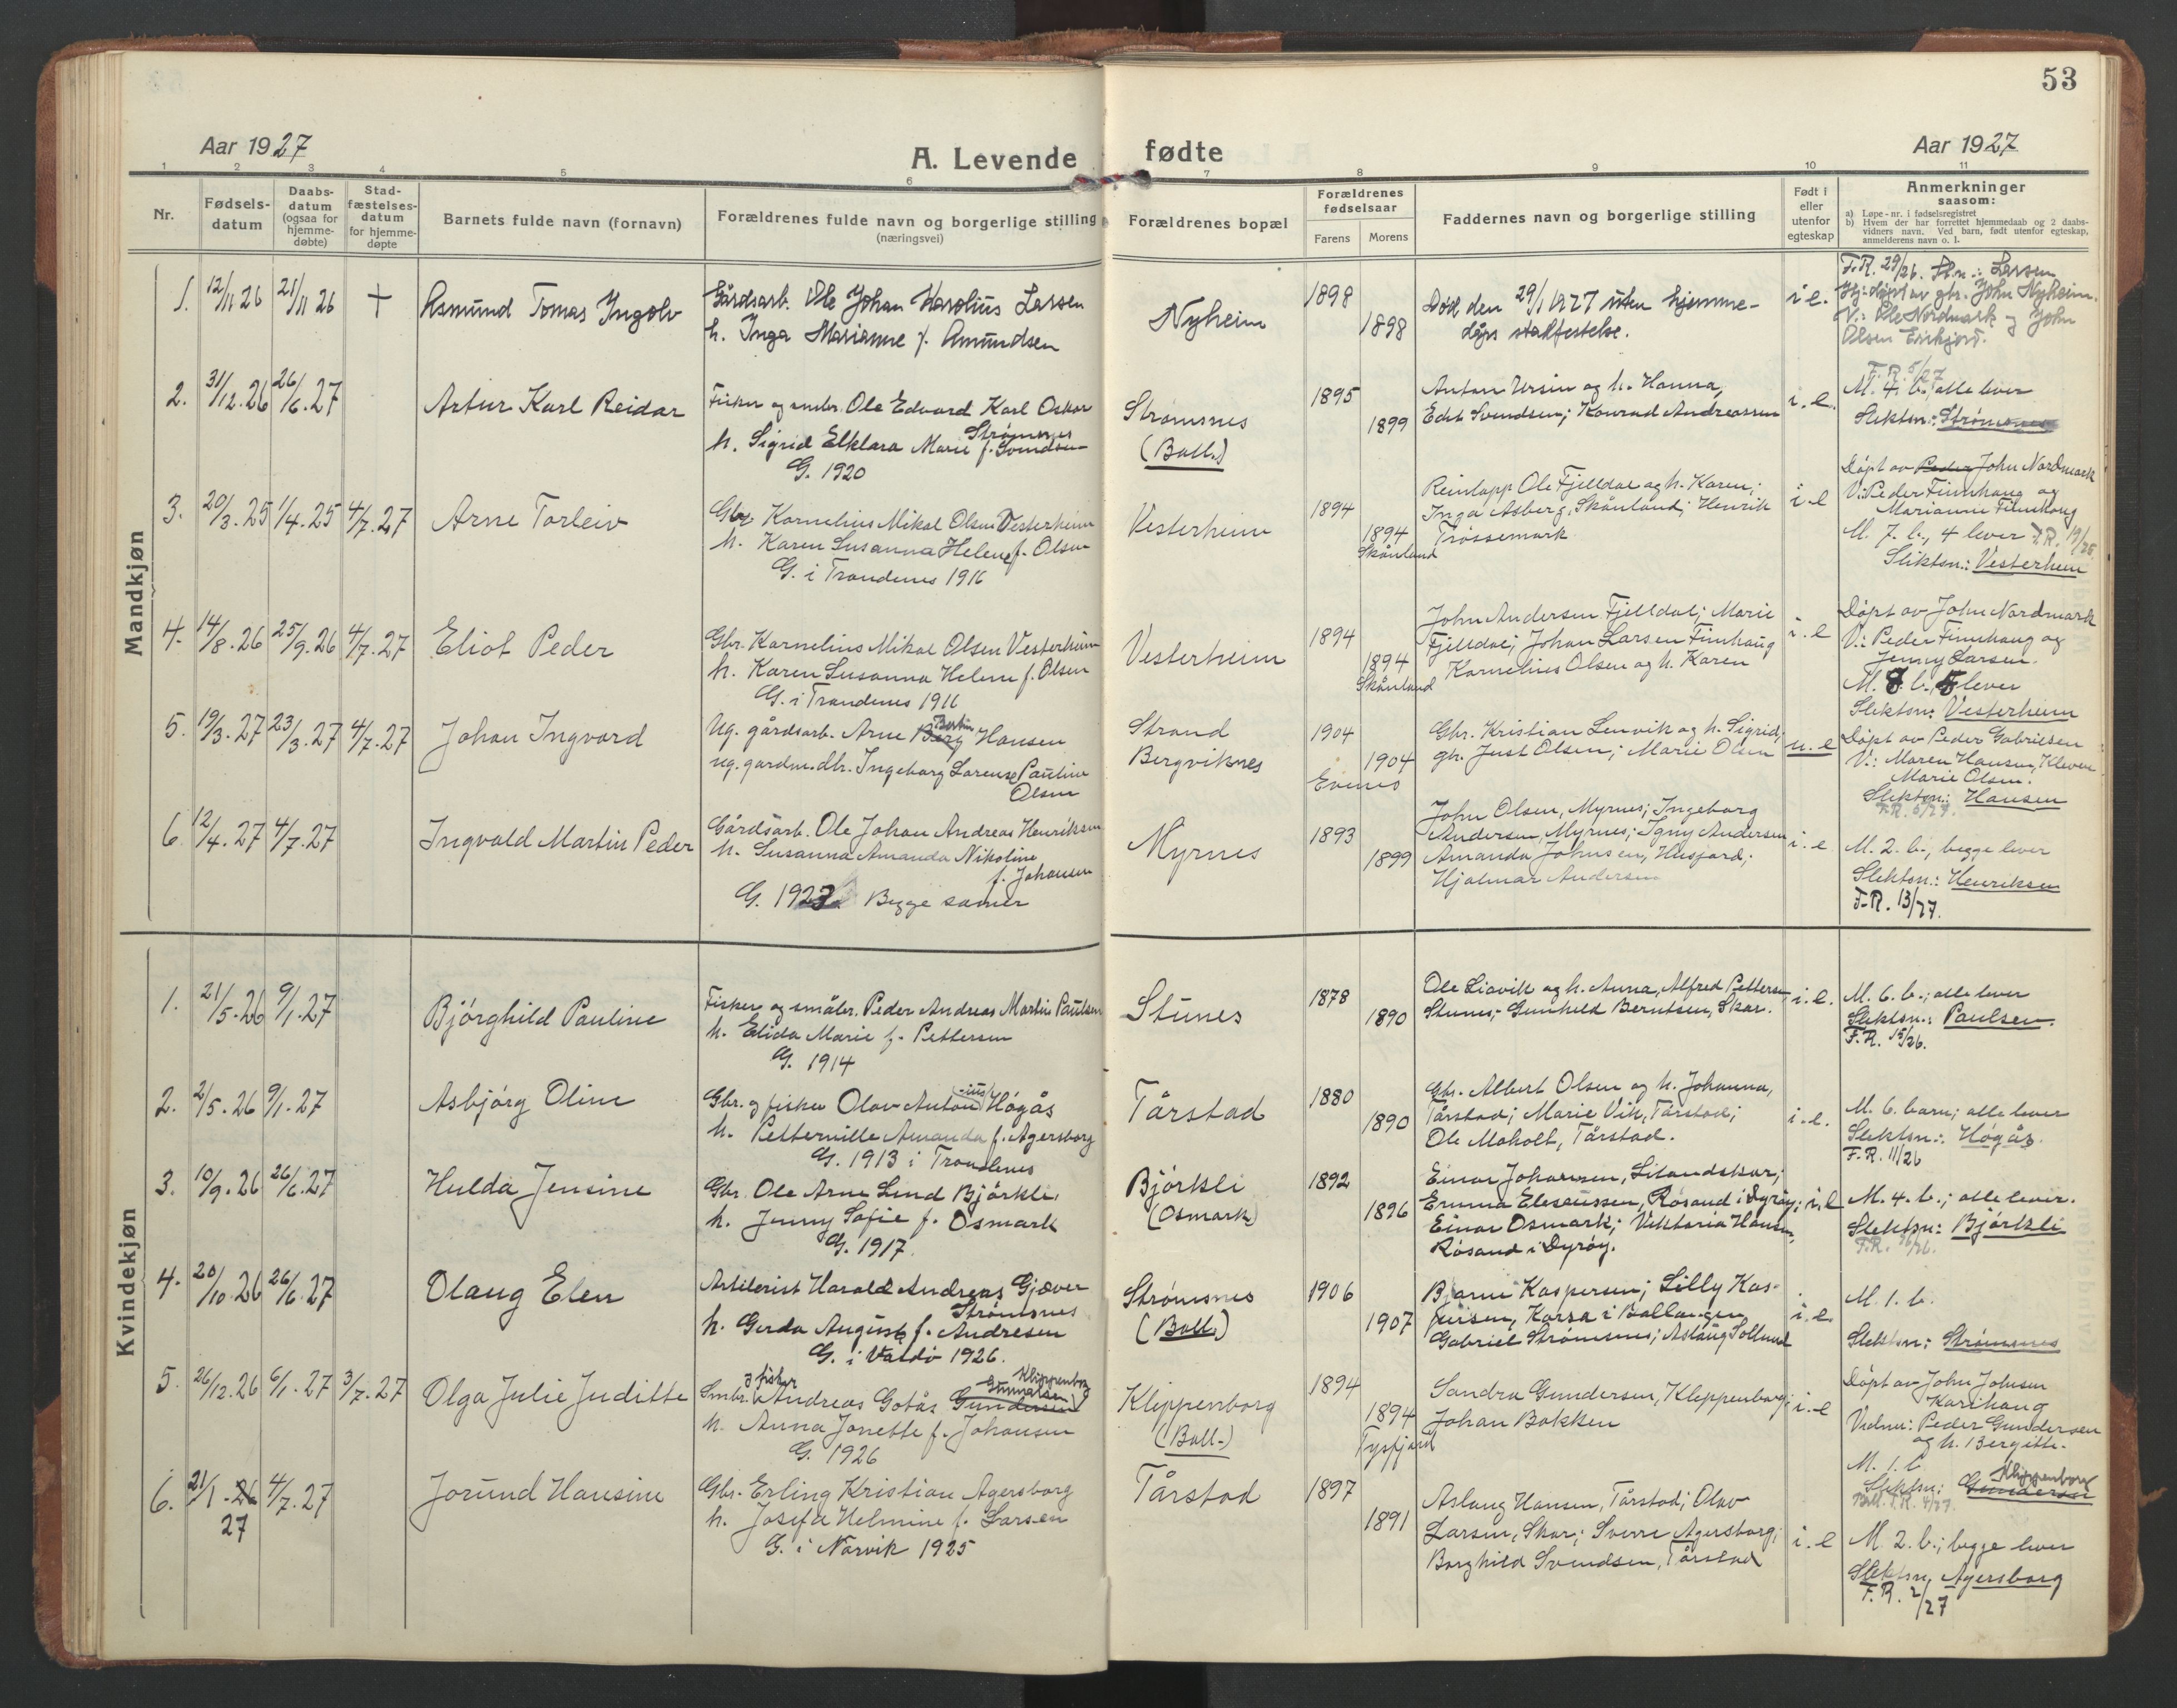 53
Aar 1927
A. Levende fødte
Aar 1927
1 2 3 4 5 6 7 8 9 10 11
Nr.
Fødsels-
datum
Daabs-
datum
(ogsaa for
hjemme-
døbte)
Stad-
fæstelses-
datum
for hjemme-
døpte
Barnets fulde navn (fornavn)
Forældrenes fulde navn og borgerlige stilling
(næringsvei)
Forældrenes bopæl
Forældrenes
fødselsaar
Farens
Morens
Faddernes navn og borgerlige stilling
Født i
eller
utenfor
egteskap
Anmerkninger
saasom:
a) Løpe-nr. i fødselsregistret
b) Hvem der har forrettet hjemmedaab og 2 daabs-
vidners navn. Ved barn, født utenfor egteskap,
anmelderens navn o. l.
Mandkjøn
1. 12/11 26 21/11 26 + Asmund Tomas Ingolv
Gårdsarb. Ole Johan Karolius Larsen
h. Inga Marianne f. Amundsen
Nyheim
1898
1898
Død den 29/1 1927 uten hjemme-
dåps stadfestelse.
i e.
F.R. 29/26. Larsen
Hj. døpt av gbr. John Nyheim.
V.: Ole Nordmark og John
Olsen
2. 31/12.26 26/6.27 Artur Karl Reidar
Fisker og smbr. Ole Edvard Karl Oskar
Strømsnes
h. Sigrid Elklara Marie f. Svendsen
G. 1920
Strømsnes
(Ball.)
1895
1899
Anton Ursin og h. Hanna,
Edit Svendsen; Konrad Andreassen
i. e.
F.R. 5/27
M. 4. b., alle lever
Slektsn.: Strømsnes
3. 20/3.25 1/4.25 4/7.27 Arne Torleiv
Gbr. Kornelius Mikal Olsen Vesterheim
h. Karen Susanna Helene f. Olsen
G. i Trondenes 1916
Vesterheim
1894
1894
Skånland
Reinlapp Ole Fjelldal og h. Karen;
Inga Asberg, Skånland; Henrik
Trøssemark
i e
Døpt av Peder John Nordmark
V: Peder Finnhaug og
Marianne Finnhaug
M. 7. b., 4 lever F.R. 19/25
Slektsn.: Vesterheim
4. 14/8.26 25/9.26 4/7.27 Eliot Peder
Gbr. Kornelius Mikal Olsen Vesterheim
h. Karen Susanna Helene f. Olsen
G. i Trondenes 1916
Vesterheim
1894
1894
Skånland
John Andersen Fjelldal; Marie
Fjelldal; Johan Larsen Finnhaug
Kornelius Olsen og h. Karen
i. e
Døpt av John Nordmark
V: Peder Finnhaug og
Jenny Larsen.
M. 8. b., 5 lever
Slektsn: Vesterheim
5. 19/3.27 23/3.27 4/7.27 Johan Ingvard
Ug. gårdsarb. Arne Berg Bertin Hansen
ug. gardm.dtr. Ingeborg Lorense Pauline
Olsen
Strand
Bergviknes
1904
1904
Evenes
Gbr. Kristian Lenvik og h. Sigrid;
gbr. Just Olsen; Marie Olsen
u. e
Døpt av Peder Gabrielsen
V.: Maren Hansen, Kleven
Marie Olsen.
Slektsn.: Hansen
F.R. 5/27.
6 12/4.27 4/7.27 Ingvald Martin Peder
Gårdsarb. Ole Johan Andreas Henriksen
h. Susanna Amanda Nikoline
f. Johansen
G. 1923 Begge samer
Myrnes
1893
1899
John Olsen, Myrnes; Ingeborg
Andersen, Myrnes; Igny Andersen
Amanda Johnsen, Husjord;
Hjalmar Andersen
i. e
M. 2. b., begge lever
Slektsn.: Henriksen
F.R. 13/27.
Kvindekjøn
1. 21/5.26 9/1.27 Bjørghild Pauline
Fisker og småbr. Peder Andreas Martin Paulsen
h. Elida Marie f. Pettersen
G. 1914
Stunes
1878
1890
Ole Liavik og h. Anna, Alfred Pettersen
Stunes; Gunhild Berntsen, Skar.
i. e.
M. 6. b.; alle lever
Slektsn.: Paulsen.
F.R. 15/26.
2. 2/5.26 9/1.27 Asbjørg Oline
Gbr. og fisker Olav Anton -ius Høgås
h. Petternille Amanda f. Agersborg
G. 1913 i Trondenes
Tårstad
1880
1890
Gbr. Albert Olsen og h. Johanna,
Tårstad; Marie Vik, Tårstad;
Ole Moholt, Tårstad.
i. e.
M. 6. barn; alle lever
Slektsn.: Høgås.
F.R. 11/26
3. 10/9.26 26/6.27 Hulda Jensine
Gbr. Ole Arne Lind Bjørkli,
h. Jenny Sofie f. Osmark
G. 1917.
Bjørkli
(Osmark)
1892
1896
Einar Johansen, Litlandskar;
Emma Eleseussen, Røsand i Dyrøy;
Einar Osmark; Viktoria Hansen,
Røsand i Dyrøy.
i. e
M. 4. b.; alle lever.
Slektsn: Bjørkli
F.R. 16/26.
4. 20/10.26 26/6.27 Olaug Elen
Artilerist Harald Andreas Gjæver
Strømsnes
h. Gerda Auguste f. Andresen
G. i Vadsö 1926.
Strømsnes
(Ball.)
1906
1907
Bjarne Kaspersen; Lilly Kas-
persen, Korsa i Ballangen
Gabriel Strømsnes; Aslaug Solland
i. e.
M. 1. b.
Slektsn: Strømsnes
5. 26/12.26 6/1.27 3/7.27 Olga Julie Juditte
Smbr. og fisker Andreas Gotås Gundersen Klippenborg
h. Anna Jonette f. Johansen
G. 1926
Klippenborg
(Ball.)
1894
1894
Tysfjord
Sandra Gundersen, Kleppenborg;
Johan Bakken
i. e
Døpt av John Johnsen
Karihaug
Vidner: Peder Gundersen
og h. Bergitte.
M. 1. b
Slektsn: Gundersen Klippenborg
Ball. F.R. 4/27.
6. 21/1.26 27 4/7.27 Jorund Hansine
Gbr. Erling Kristian Agersborg
h. Josefa Helmine f. Larsen
G. i Narvik 1925
Tårstad
1897
1891
Aslaug Hansen, Tårstad; Olav
Larsen, Skar; Sverre Agersborg;
Borghild Svendsen, Tårstad
i. e
M. 2. b.; begge lever
Slektsn. Agersborg
F.R. 2/27